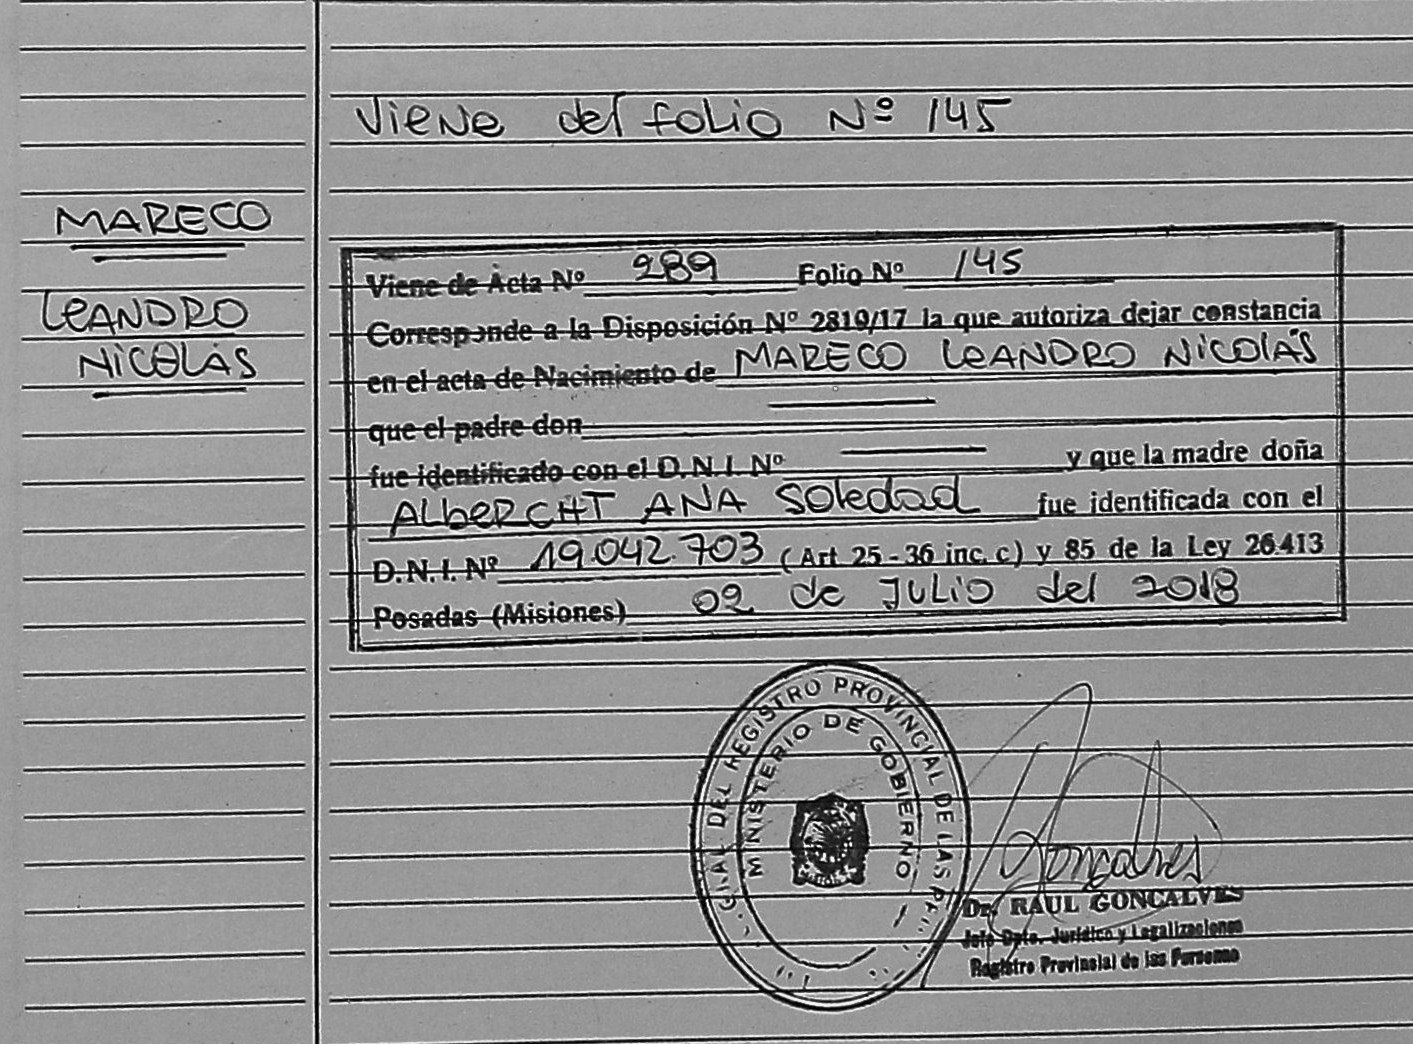 Viene del folio Nº 145
MARECO
LEANDRO
NICOLÁS
Viene de Acta Nº 289 Folio Nº 145
Corresponde a la Disposición Nº 2819/17 la que autoriza dejar constancia
en el acta de Nacimiento de MARECO LEANDRO NICOLÁS
que el padre don
fue identificado con el D.N.I. Nº y que la madre doña
ALBERCHT ANA Soledad fue identificada con el
D.N.I. Nº 19.042.703 (Art 25 - 36 inc. c) y 85 de la Ley 26.413
Posadas (Misiones) 02 de JULIO del 2018
DEL REGISTRO PROVINCIAL DE LAS
MINISTERIO DE GOBIERNO
Goncalves
Dr. RAUL GONCALVES
Jefe Dpto. Jurídico y Legalizaciones
Registro Provincial de las Personas